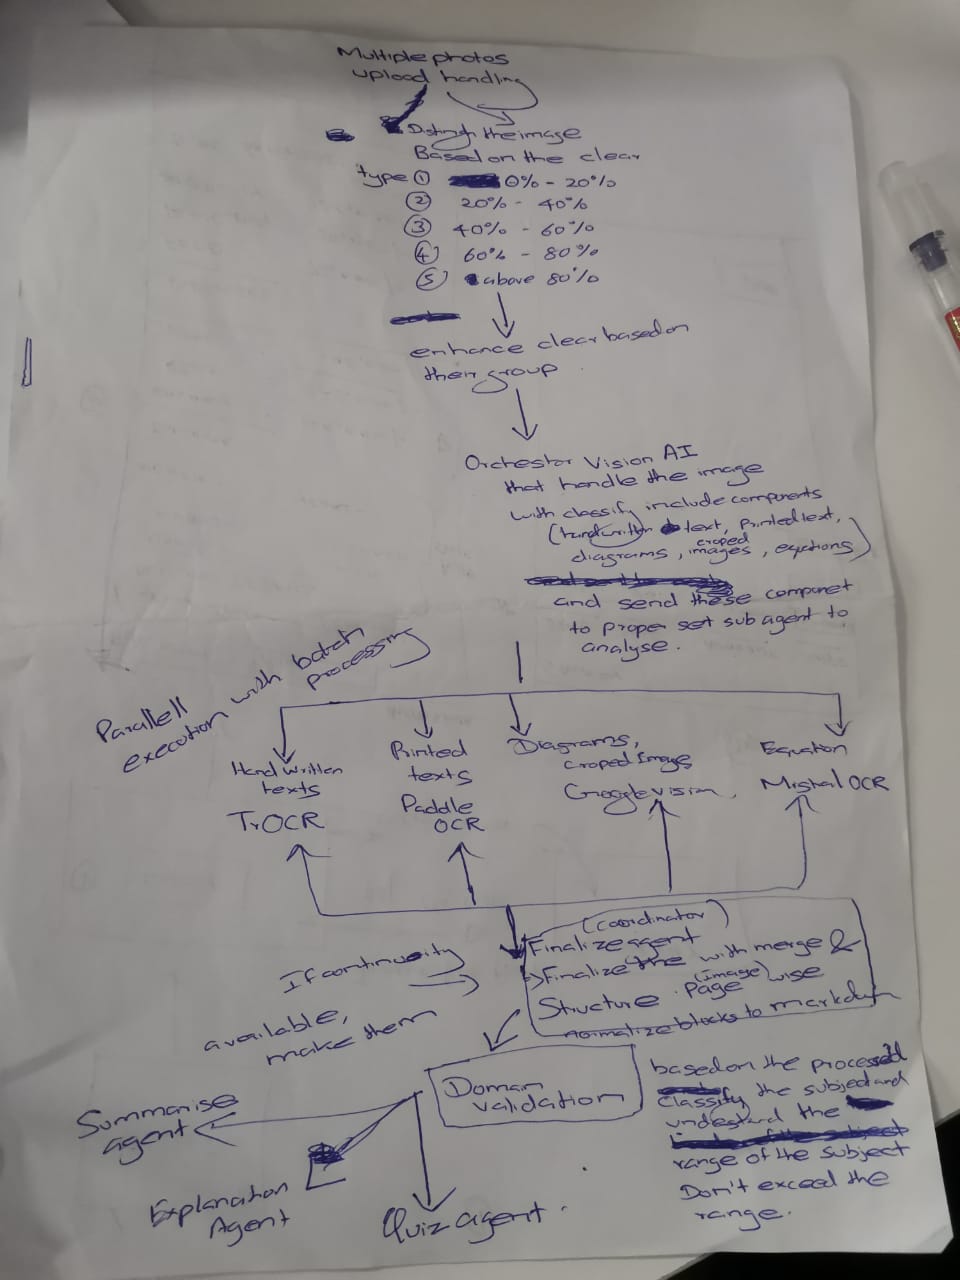 Multiple photos
upload handling
Distingsh the image
Based on the clear
type ① 0% - 20%
② 20% - 40%
③ 40% - 60%
④ 60% - 80%
⑤ above 80%
enhance clear based on
their group
Orchestor Vision AI
that handle the image
with classify include components
(handwritten text, Printed text,
diagrams, croped images, eqctions)
and send these componet
to proper set sub agent to
analyse.
Parallell
execution with batch
processing
Hand written
texts
TrOCR
Printed
texts
Paddle
OCR
Diagrams,
croped Image
Google vision,
Equation
Mistral OCR
If continuity
available,
make them
(coordinator)
Finalize agent
->Finalize the with merge &
Structure Page (image) wise
normalize blocks to markdown
Doman
validation
based on the processed
Classify the subject and
undestand the
range of the subject
Don't exceed the
range.
Summarise
agent
Explanation
Agent
Quiz agent.